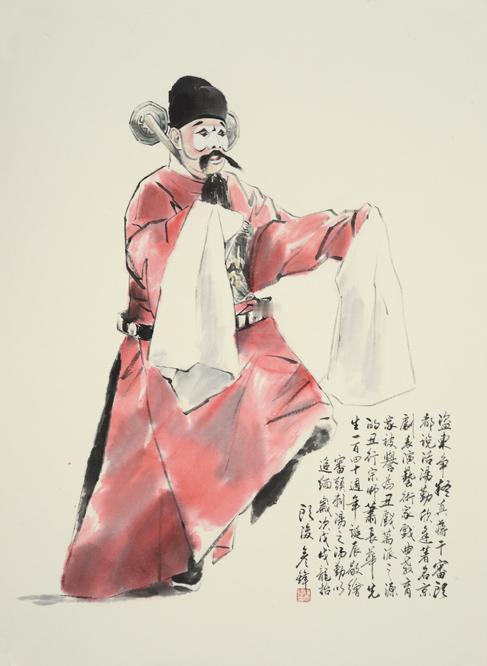 真蔣干審頭
都說活湯勤欣逢著名京
劇表演藝術家戲曲教育
家被譽為丑戲萬派之源
的丑行宗師蕭長華先
生一百四十週年誕辰敬繪
審頭刺湯之湯勤以
追緬歲次戊戌龍抬
頭後